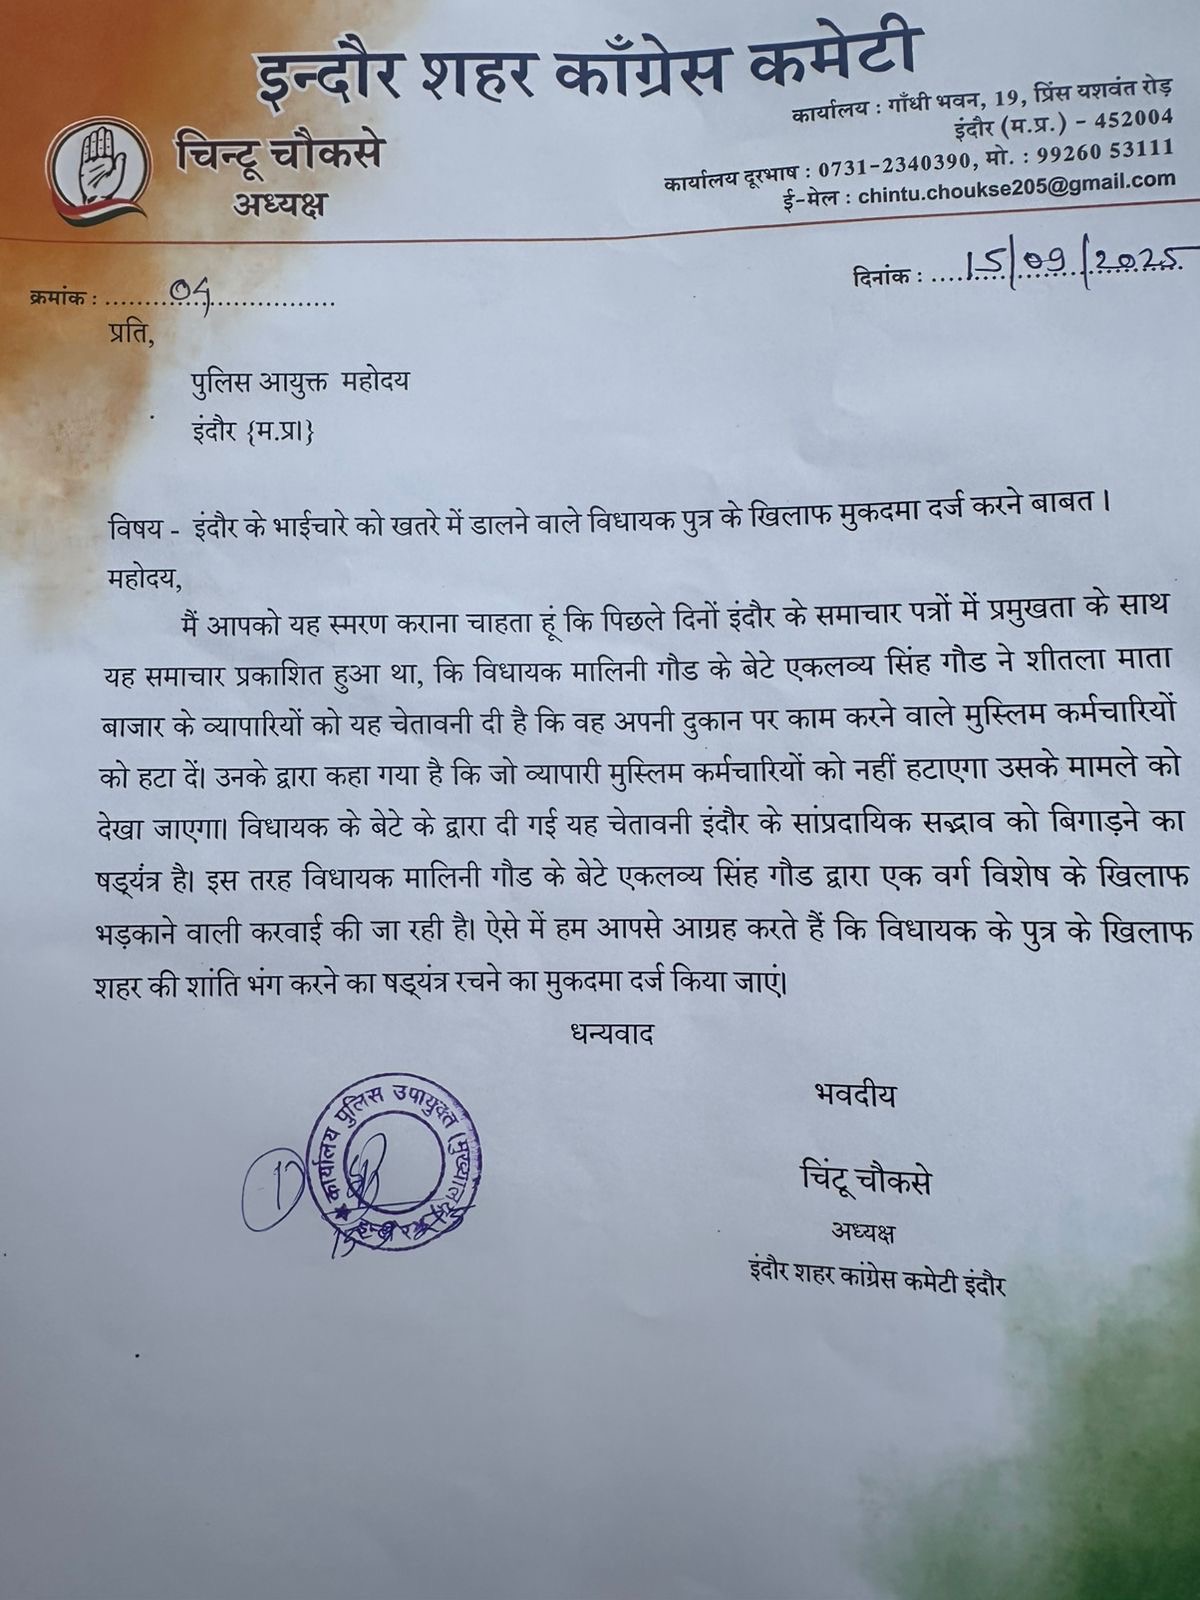 इन्दौर शहर काँग्रेस कमेटी
चिन्टू चौकसे
अध्यक्ष
कार्यालय : गाँधी भवन, 19, प्रिंस यशवंत रोड़
इंदौर (म.प्र.) - 452004
कार्यालय दूरभाष : 0731-2340390, मो. : 99260 53111
ई-मेल : chintu.choukse205@gmail.com
क्रमांक :
दिनांक : 15/09/2025
प्रति,
पुलिस आयुक्त महोदय
इंदौर {म.प्र।}
विषय - इंदौर के भाईचारे को खतरे में डालने वाले विधायक पुत्र के खिलाफ मुकदमा दर्ज करने बाबत ।
महोदय,
मैं आपको यह स्मरण कराना चाहता हूं कि पिछले दिनों इंदौर के समाचार पत्रों में प्रमुखता के साथ
यह समाचार प्रकाशित हुआ था, कि विधायक मालिनी गौड के बेटे एकलव्य सिंह गौड ने शीतला माता
बाजार के व्यापारियों को यह चेतावनी दी है कि वह अपनी दुकान पर काम करने वाले मुस्लिम कर्मचारियों
को हटा दें। उनके द्वारा कहा गया है कि जो व्यापारी मुस्लिम कर्मचारियों को नहीं हटाएगा उसके मामले को
देखा जाएगा। विधायक के बेटे के द्वारा दी गई यह चेतावनी इंदौर के सांप्रदायिक सद्भाव को बिगाड़ने का
षड्यंत्र है। इस तरह विधायक मालिनी गौड के बेटे एकलव्य सिंह गौड द्वारा एक वर्ग विशेष के खिलाफ
भड़काने वाली करवाई की जा रही है। ऐसे में हम आपसे आग्रह करते हैं कि विधायक के पुत्र के खिलाफ
शहर की शांति भंग करने का षड्यंत्र रचने का मुकदमा दर्ज किया जाएं।
धन्यवाद
भवदीय
चिंटू चौकसे
अध्यक्ष
इंदौर शहर कांग्रेस कमेटी इंदौर
कार्यालय पुलिस उपायुक्त (मुख्यालय)